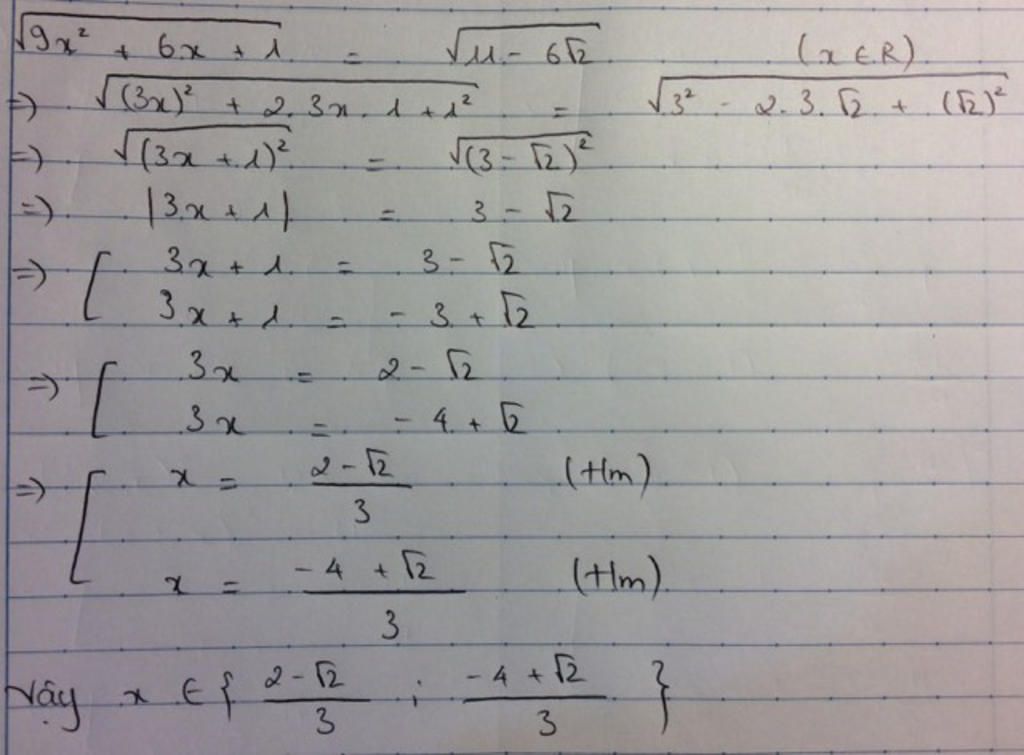 √(9x² + 6x + 1) = √(11 - 6√2) (x ∈ R)
=> √((3x)² + 2.3x.1 + 1²) = √(3² - 2.3.√2 + (√2)²)
=> √((3x + 1)²) = √((3 - √2)²)
=> |3x + 1| = 3 - √2
=> [ 3x + 1 = 3 - √2
3x + 1 = - 3 + √2
=> [ 3x = 2 - √2
3x = - 4 + √2
=> [ x = (2 - √2)/3 (t/m)
x = (- 4 + √2)/3 (t/m)
Vậy x ∈ { (2 - √2)/3 ; (- 4 + √2)/3 }